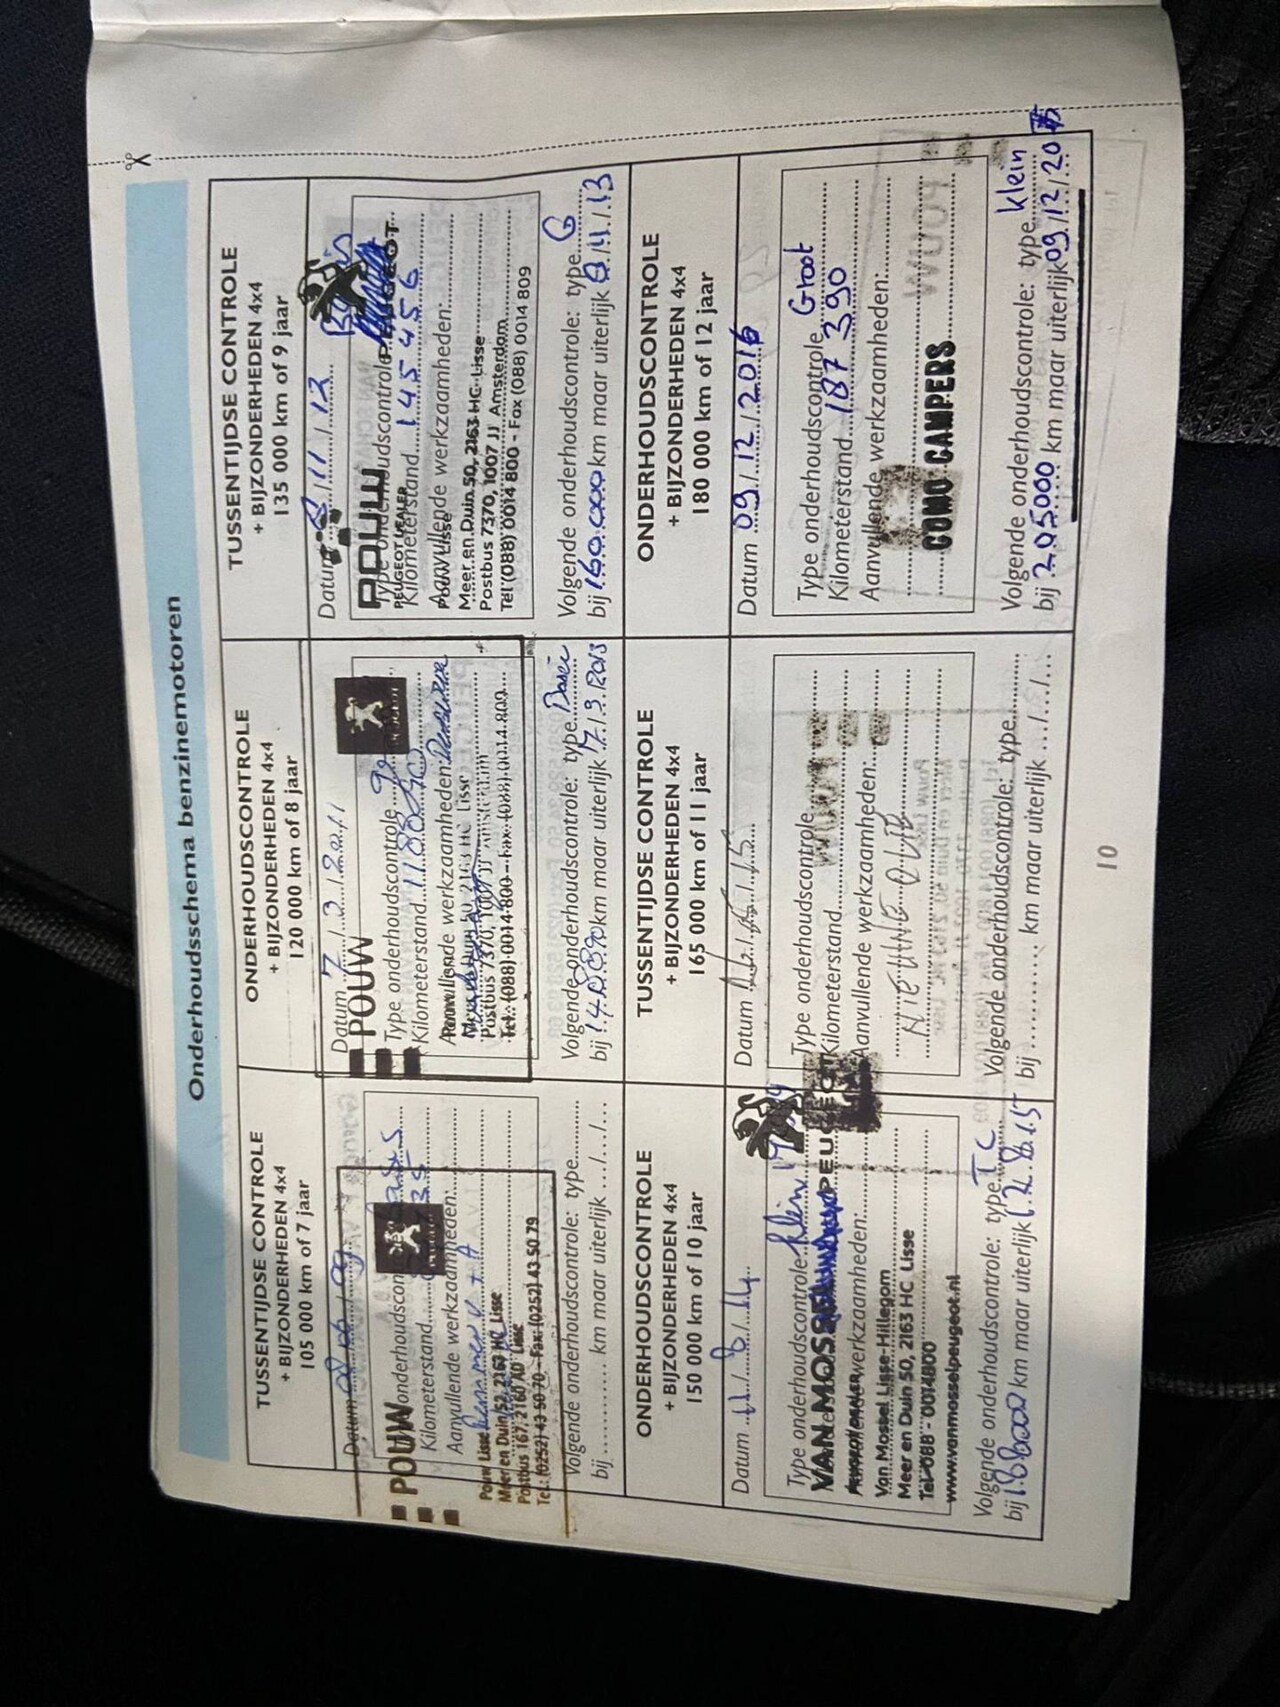 Onderhoudsschema benzinemotoren
TUSSENTIJDSE CONTROLE
+ BIJZONDERHEDEN 4x4
105 000 km of 7 jaar
Datum
POUW
onderhoudscon
Kilometerstand
Aanvullende werkzaamheden:
Pouw Lisse
Meer en Duin 52, 2163 HC Lisse
Postbus 167, 2160 AD Lisse
Tel.: (0252) 43 50 70 - Fax: (0252) 43 50 79
Volgende onderhoudscontrole: type
bij .......... km maar uiterlijk .../.../...
ONDERHOUDSCONTROLE
+ BIJZONDERHEDEN 4x4
120 000 km of 8 jaar
Datum 7 / 3 / 2011
POUW
Type onderhoudscontrole
Kilometerstand
Aanvullende werkzaamheden:
Postbus 7370, 1007 JJ Amsterdam
Tel.: (088) 0014 800 - Fax: (088) 0014 809
Volgende onderhoudscontrole: type
bij km maar uiterlijk 7.3.2013
TUSSENTIJDSE CONTROLE
+ BIJZONDERHEDEN 4x4
135 000 km of 9 jaar
Datum 8 / 11 / 12
POUW
PEUGEOT
Type onderhoudscontrole
PEUGEOT DEALER
Kilometerstand 145 456
Aanvullende werkzaamheden:
Pouw Lisse
Meer en Duin 50, 2163 HC Lisse
Postbus 7370, 1007 JJ Amsterdam
Tel (088) 0014 800 - Fax (088) 0014 809
Volgende onderhoudscontrole: type G
bij 160.000 km maar uiterlijk 8 / 11 / 13
ONDERHOUDSCONTROLE
+ BIJZONDERHEDEN 4x4
150 000 km of 10 jaar
Datum 11 / 8 / 14
Type onderhoudscontrole klein
VAN MOSSEL PEUGEOT
werkzaamheden:
Van Mossel Lisse-Hillegom
Meer en Duin 50, 2163 HC Lisse
Tel 088 - 0014800
www.vanmosselpeugeot.nl
Volgende onderhoudscontrole: type TC
bij km maar uiterlijk 12.8.15
TUSSENTIJDSE CONTROLE
+ BIJZONDERHEDEN 4x4
165 000 km of 11 jaar
Datum
Type onderhoudscontrole
Kilometerstand
Aanvullende werkzaamheden:
NIEUWE OLIE
Volgende onderhoudscontrole: type
bij .......... km maar uiterlijk .../.../...
ONDERHOUDSCONTROLE
+ BIJZONDERHEDEN 4x4
180 000 km of 12 jaar
Datum 09 / 12 / 2016
Type onderhoudscontrole Groot
Kilometerstand 187 390
Aanvullende werkzaamheden:
COMO CAMPERS
Volgende onderhoudscontrole: type klein
bij 205000 km maar uiterlijk 09 / 12 / 20
10